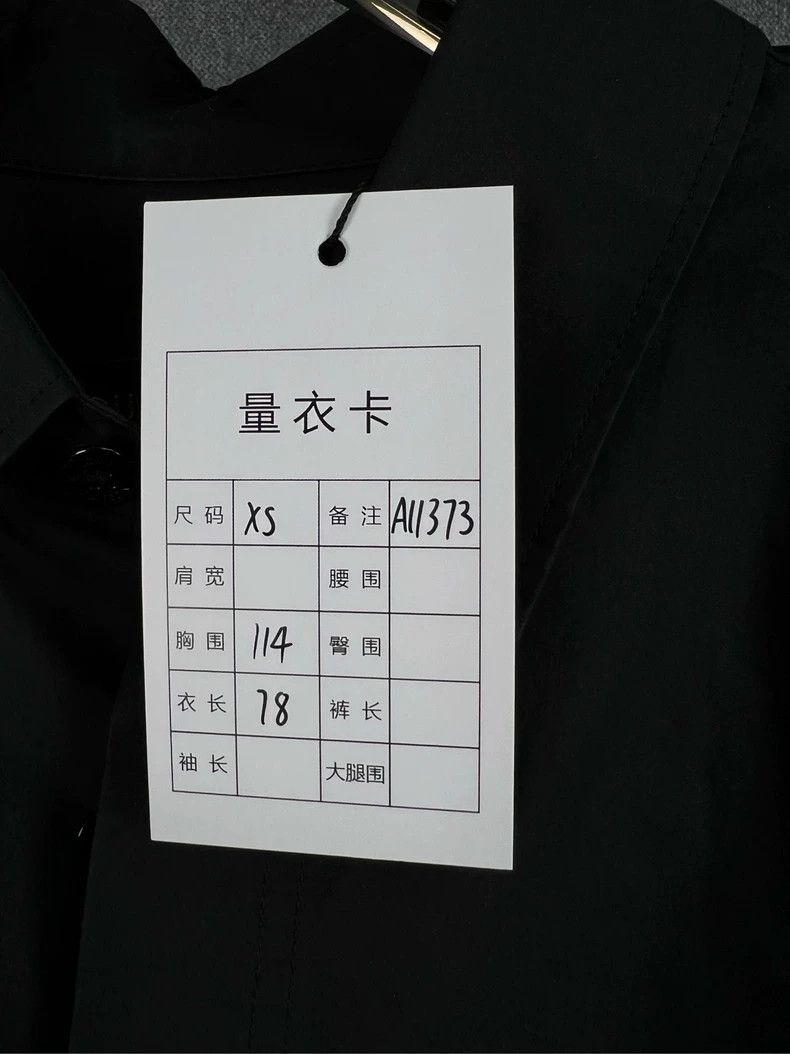 量衣卡
尺码 XS 备注 A11373
肩宽 腰围
胸围 114 臀围
衣长 78 裤长
袖长 大腿围